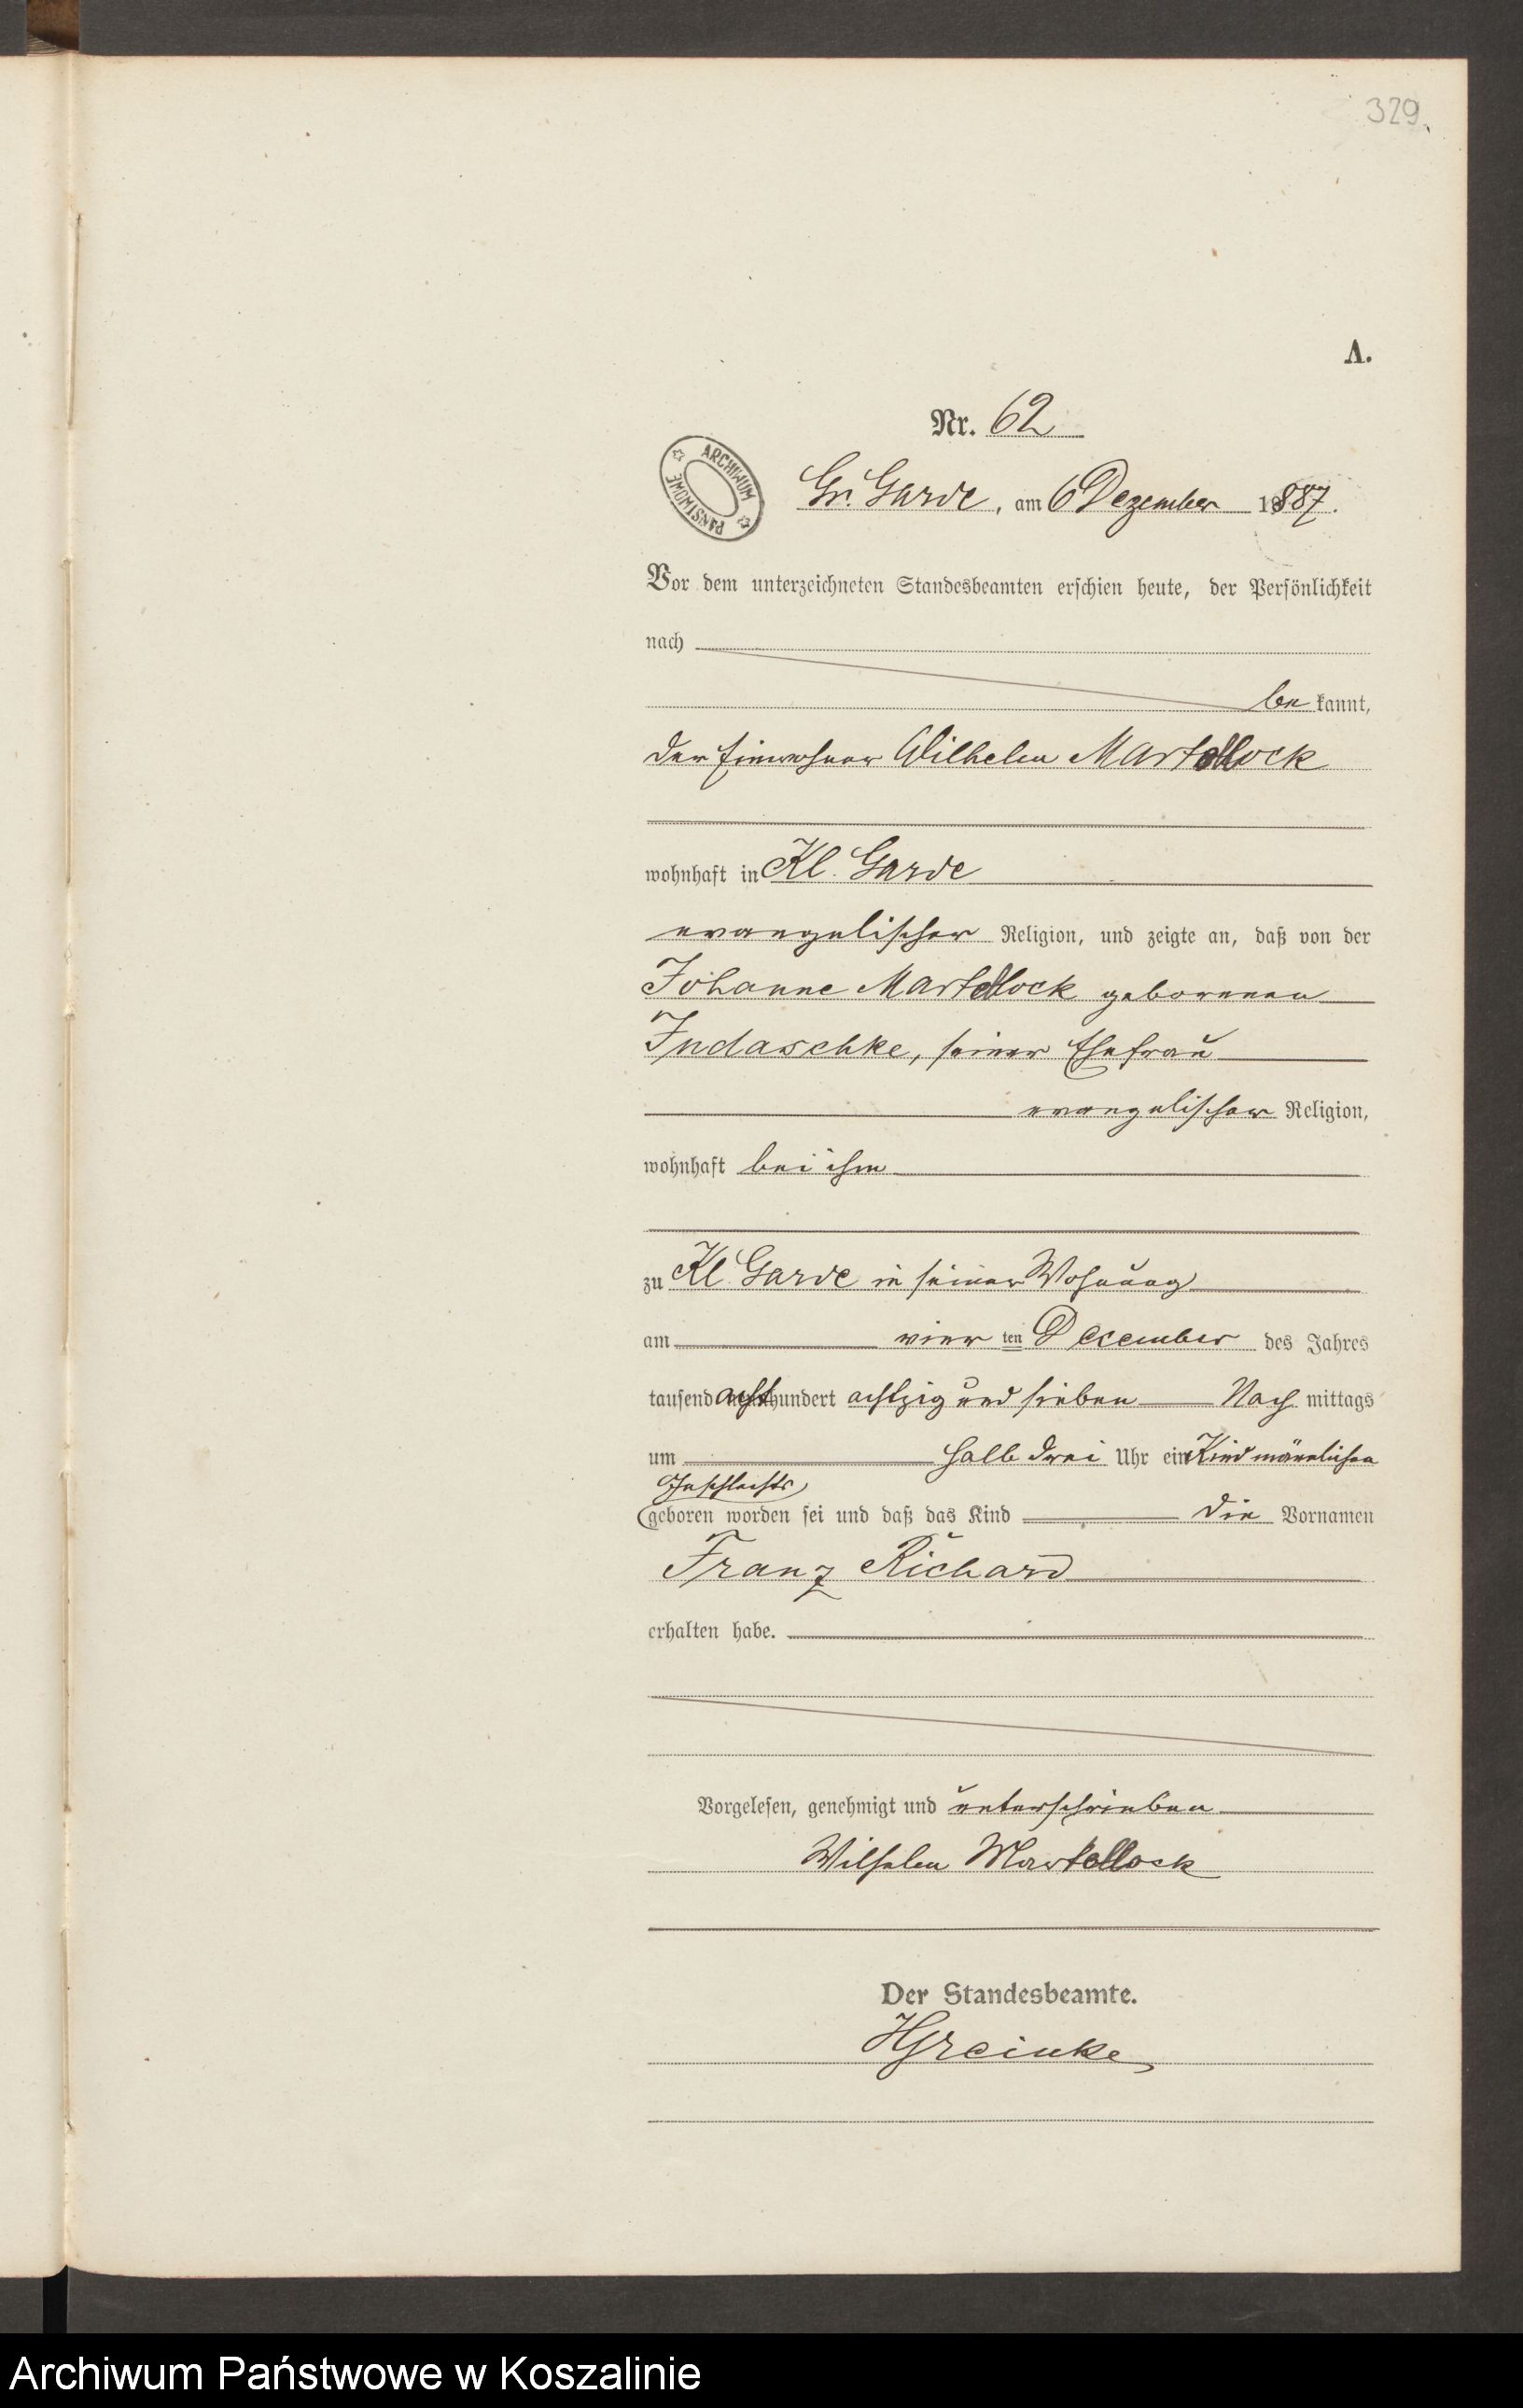 329.
A.
Nr. 62
ARCHIWUM PAŃSTWOWE
Gr. Garde, am 6 Dezember 1887.
Vor dem unterzeichneten Standesbeamten erschien heute, der Persönlichkeit
nach
be kannt,
der Einwohner Wilhelm Martollock
wohnhaft in Kl. Garde
evangelischer Religion, und zeigte an, daß von der
Johanne Martollock geborenen
Judaschke, seiner Ehefrau
evangelischer Religion,
wohnhaft bei ihm
zu Kl. Garde in seiner Wohnung
am vier ten Dezember des Jahres
tausend acht hundert achtzig und sieben Nach mittags
um halb drei Uhr ein Kind männlichen
Geschlechts
geboren worden sei und daß das Kind die Vornamen
Franz Richard
erhalten habe.
Vorgelesen, genehmigt und unterschrieben
Wilhelm Martollock
Der Standesbeamte.
Archiwum Państwowe w Koszalinie